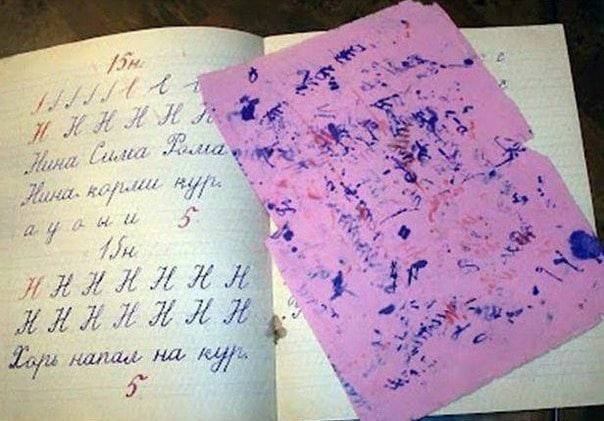 15н.
Н Н Н Н Н Н
Нина Сима Рома
Нина корми кур.
а у о ы и 5.
15н
Н Н Н Н Н Н Н
Н Н Н Н Н Н Н
Хорь напал на кур.
5.